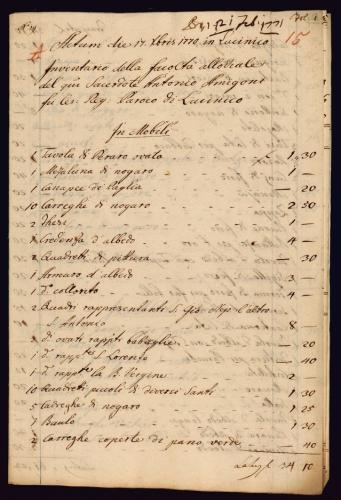 Actum die 17. Xbris 1770 in Lucinico
15
Inventario della facoltà allodiale
del qm Sacerdote Antonio Amigoni
fu Ces. Reg. Paroco di Lucinico
In Mobeli
1 Tavola di Peraro ovata 1 30
1 Mezaluna di nogaro 1
1 Canapee di paglia 20
10 Carreghe di nogaro 2 30
2
Credenza d'albedo 4
2 Quadretti di pittura 30
1 Armaro d'albedo 3
1 do collorito 4
2 Quadri rappresentanti S. l'altro
S. Antonio 8
2 do ovati rappti battaglie 20
1 do rappte S. Lorenzo 40
1 do rappte la B. Vergine 2
10 Quadretti picoli di diversi Santi 1 30
5 Cadreghe di nogaro 1 25
1 Baulo 1 30
2 Carreghe coperte di pano verde 40
34 10